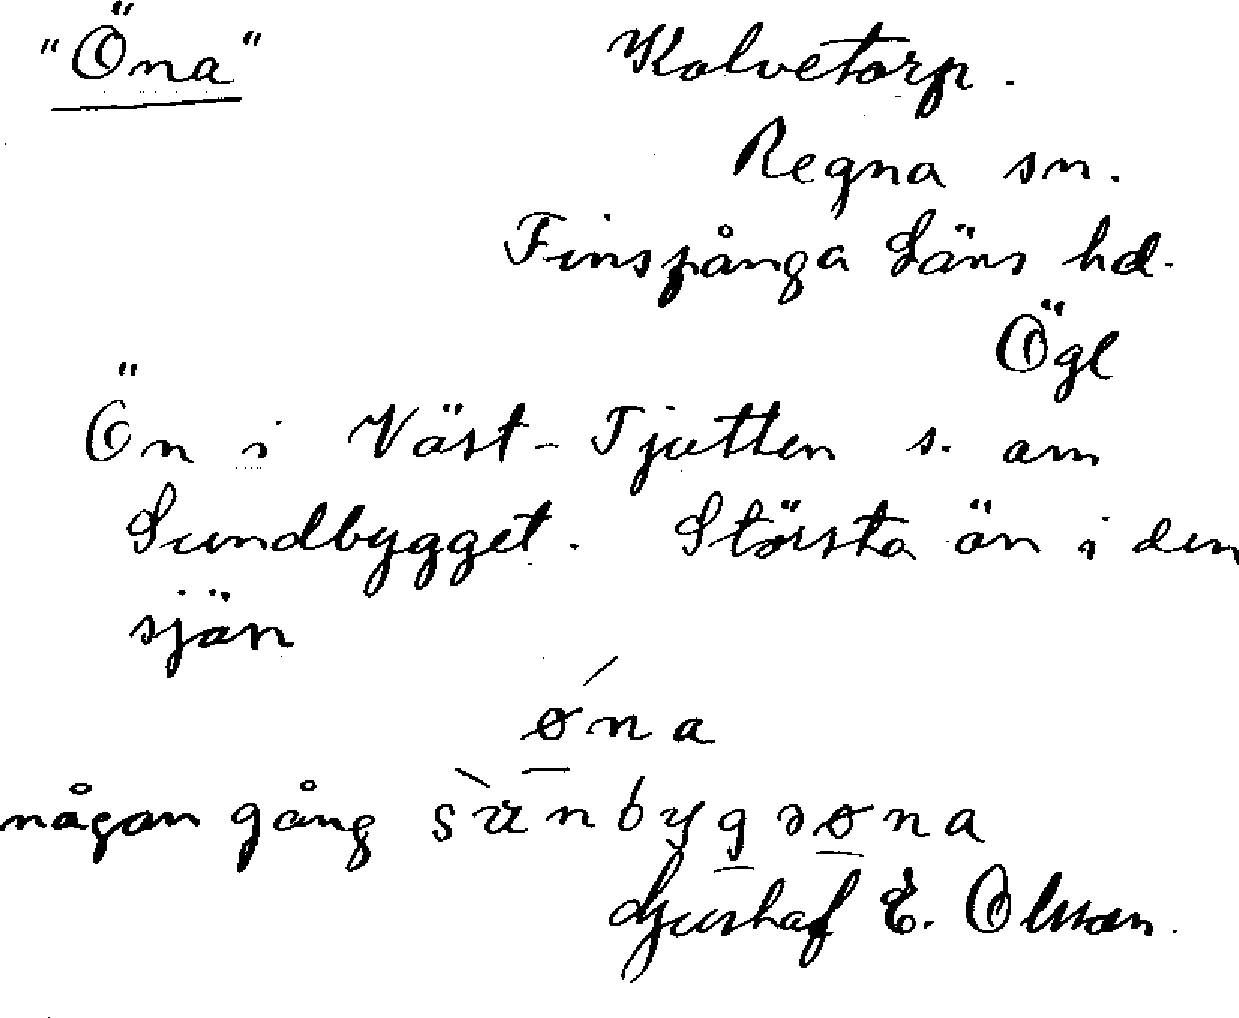 "Öna" Kolvetorp.
Regna sn.
Finspånga Läns hd.
Ögl
Ön i Väst-Tjutten s. om
Sundbygget. Största ön i den
sjön
øna
någon gång
Gusthaf E. Olsson.